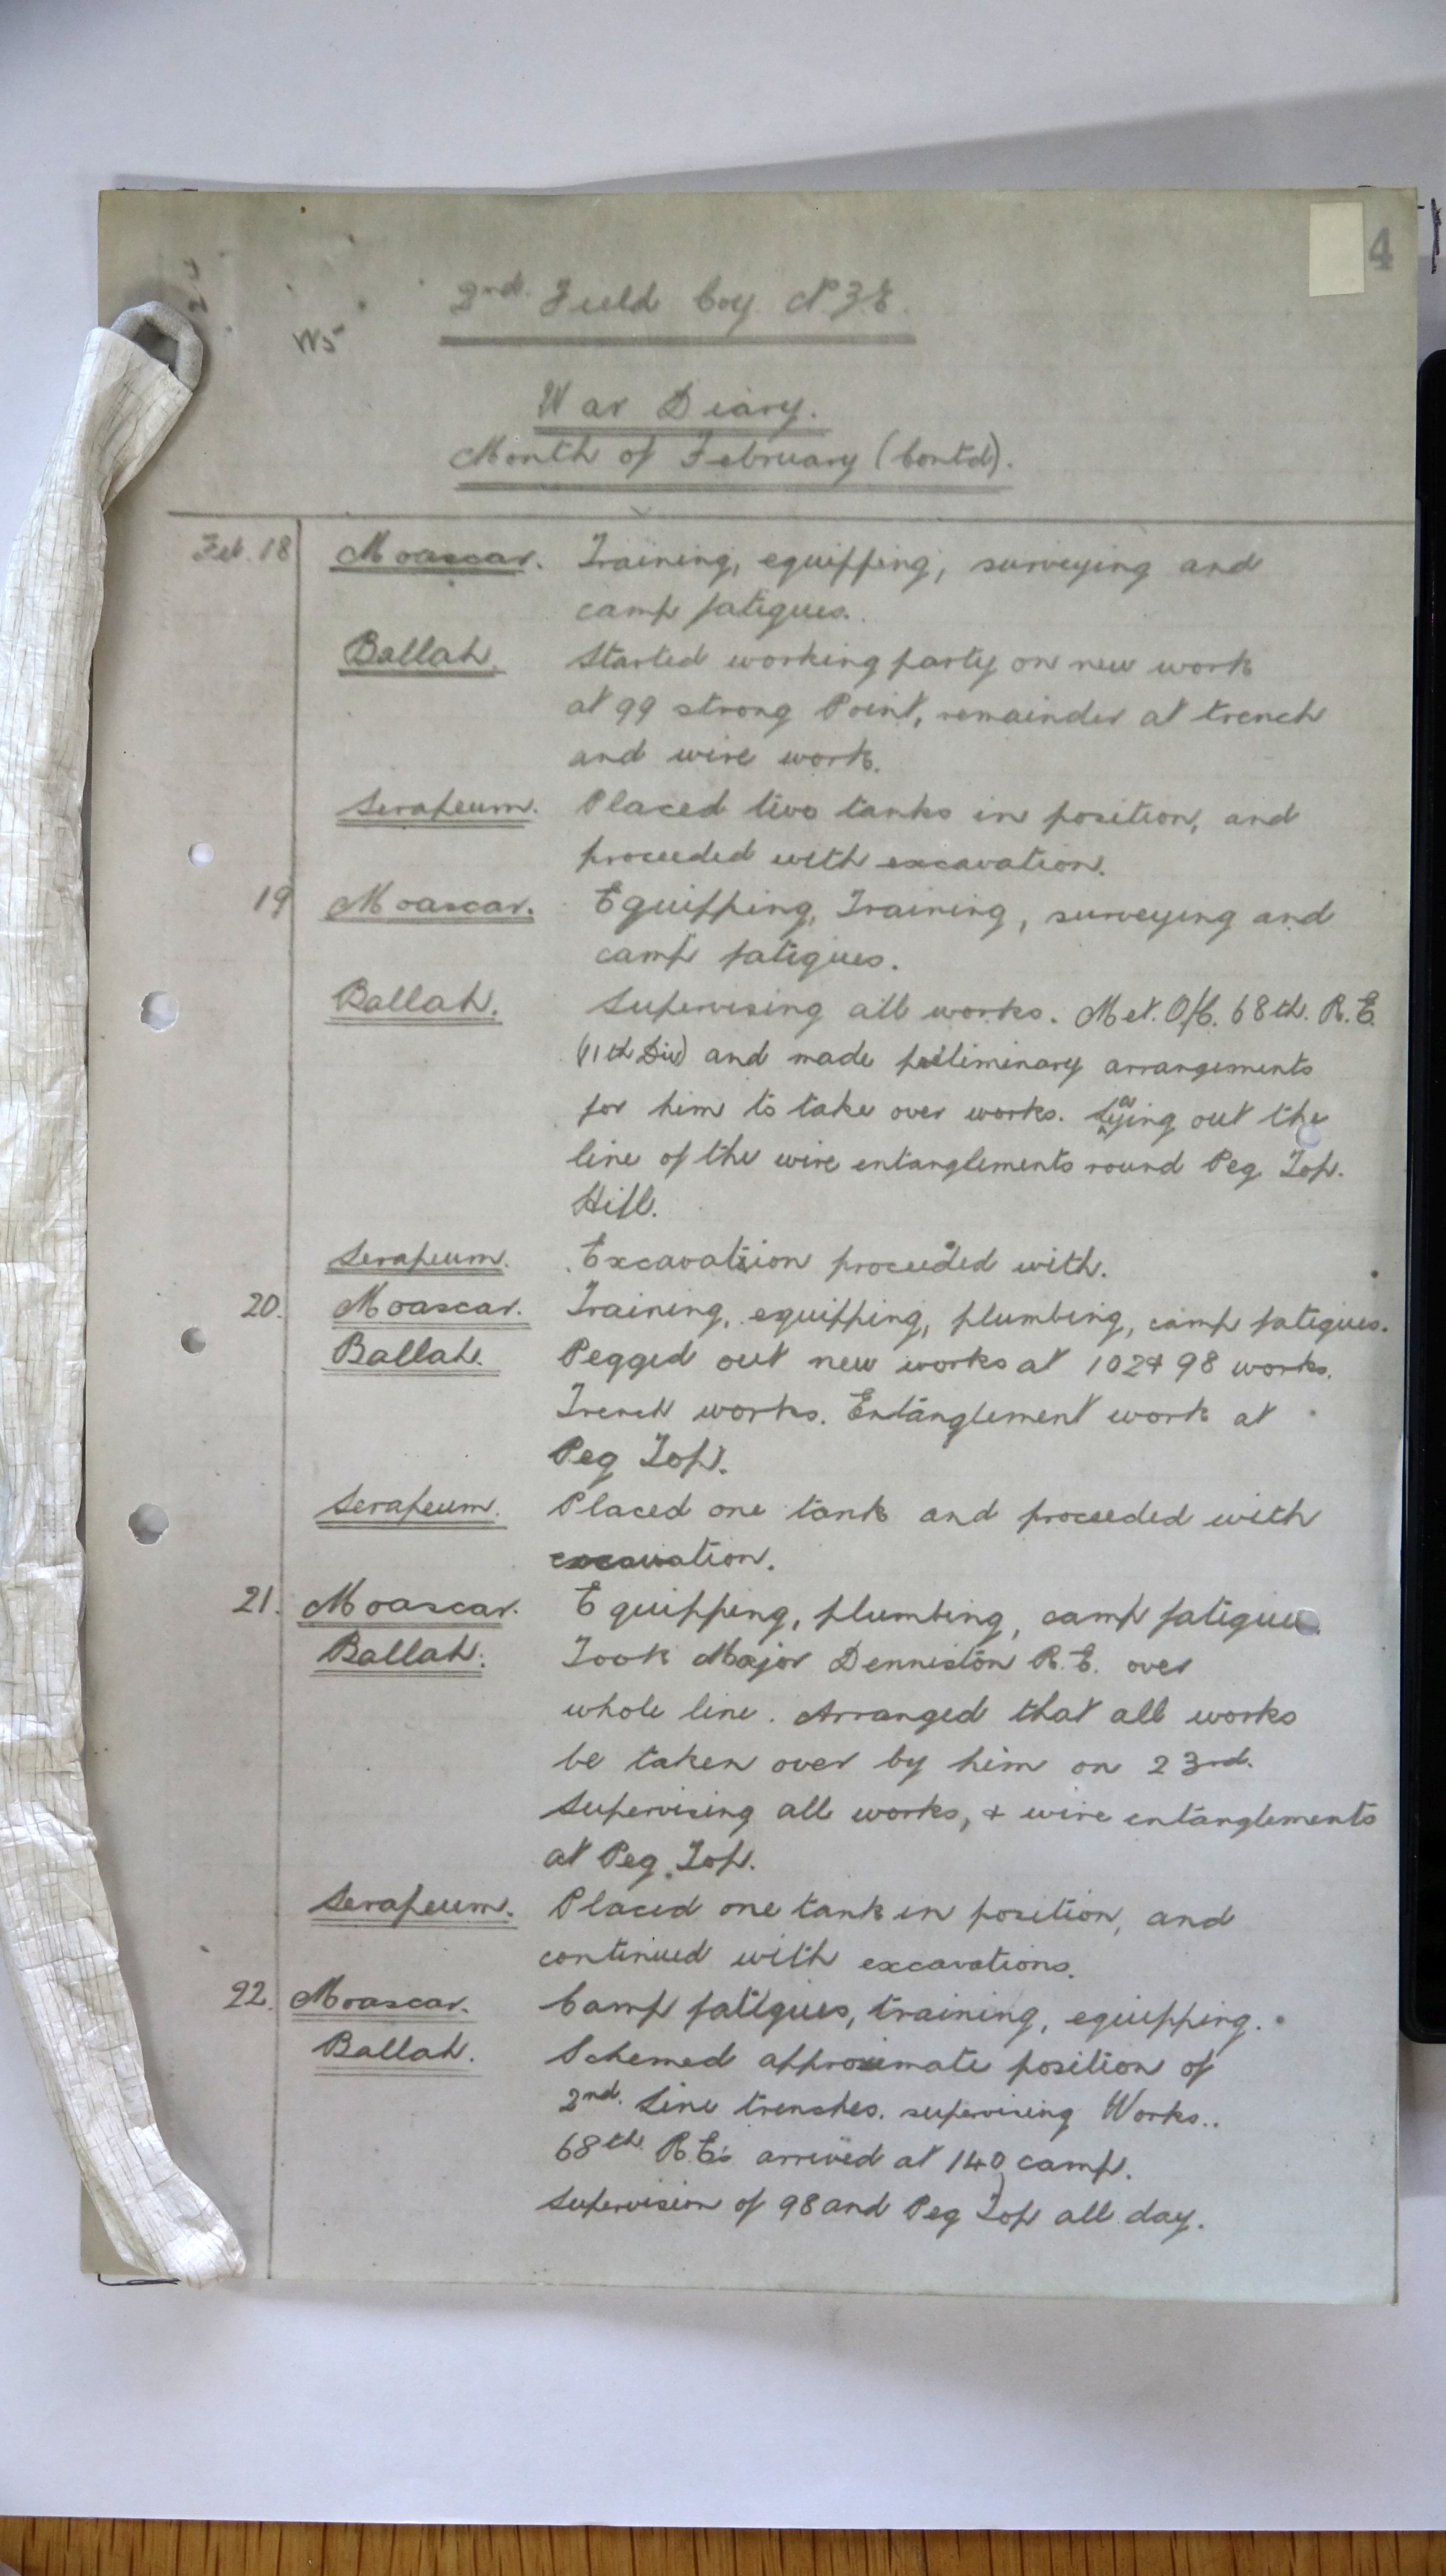 4
2nd. Field Coy. N.Z.E.
W5
War Diary.
Month of February (Contd).
Feb. 18 Moascar. Training, equipping, surveying and
camp fatigues.
Ballah. Started working party on new work
at 99 strong Point, remainder at trench
and wire work.
Serapeum. Placed two tanks in position, and
proceeded with excavation.
19 Moascar. Equipping, Training, surveying and
camp fatigues.
Ballah. Supervising all works. Met. O/C. 68th. R.E.
(11th Div) and made preliminary arrangements
for him to take over works. Laying out the
line of the wire entanglements round Peg Top.
Hill.
Serapeum. Excavation proceeded with.
20. Moascar. Training, equipping, plumbing, camp fatigues.
Ballah. Pegged out new works at 102 & 98 works.
Trench works. Entanglement work at
Peg Top.
Serapeum. Placed one tank and proceeded with
excavation.
21. Moascar. Equipping, plumbing, camp fatigues.
Ballah. Took Major Denniston R.E. over
whole line. Arranged that all works
be taken over by him on 23rd.
Supervising all works, & wire entanglements
at Peg Top.
Serapeum. Placed one tank in position, and
continued with excavations.
22. Moascar. Camp fatigues, training, equipping.
Ballah. Schemed approximate position of
2nd. Line trenches. supervising Works..
68th R.E's arrived at 140 camp.
Supervision of 98 and Peg Top all day.